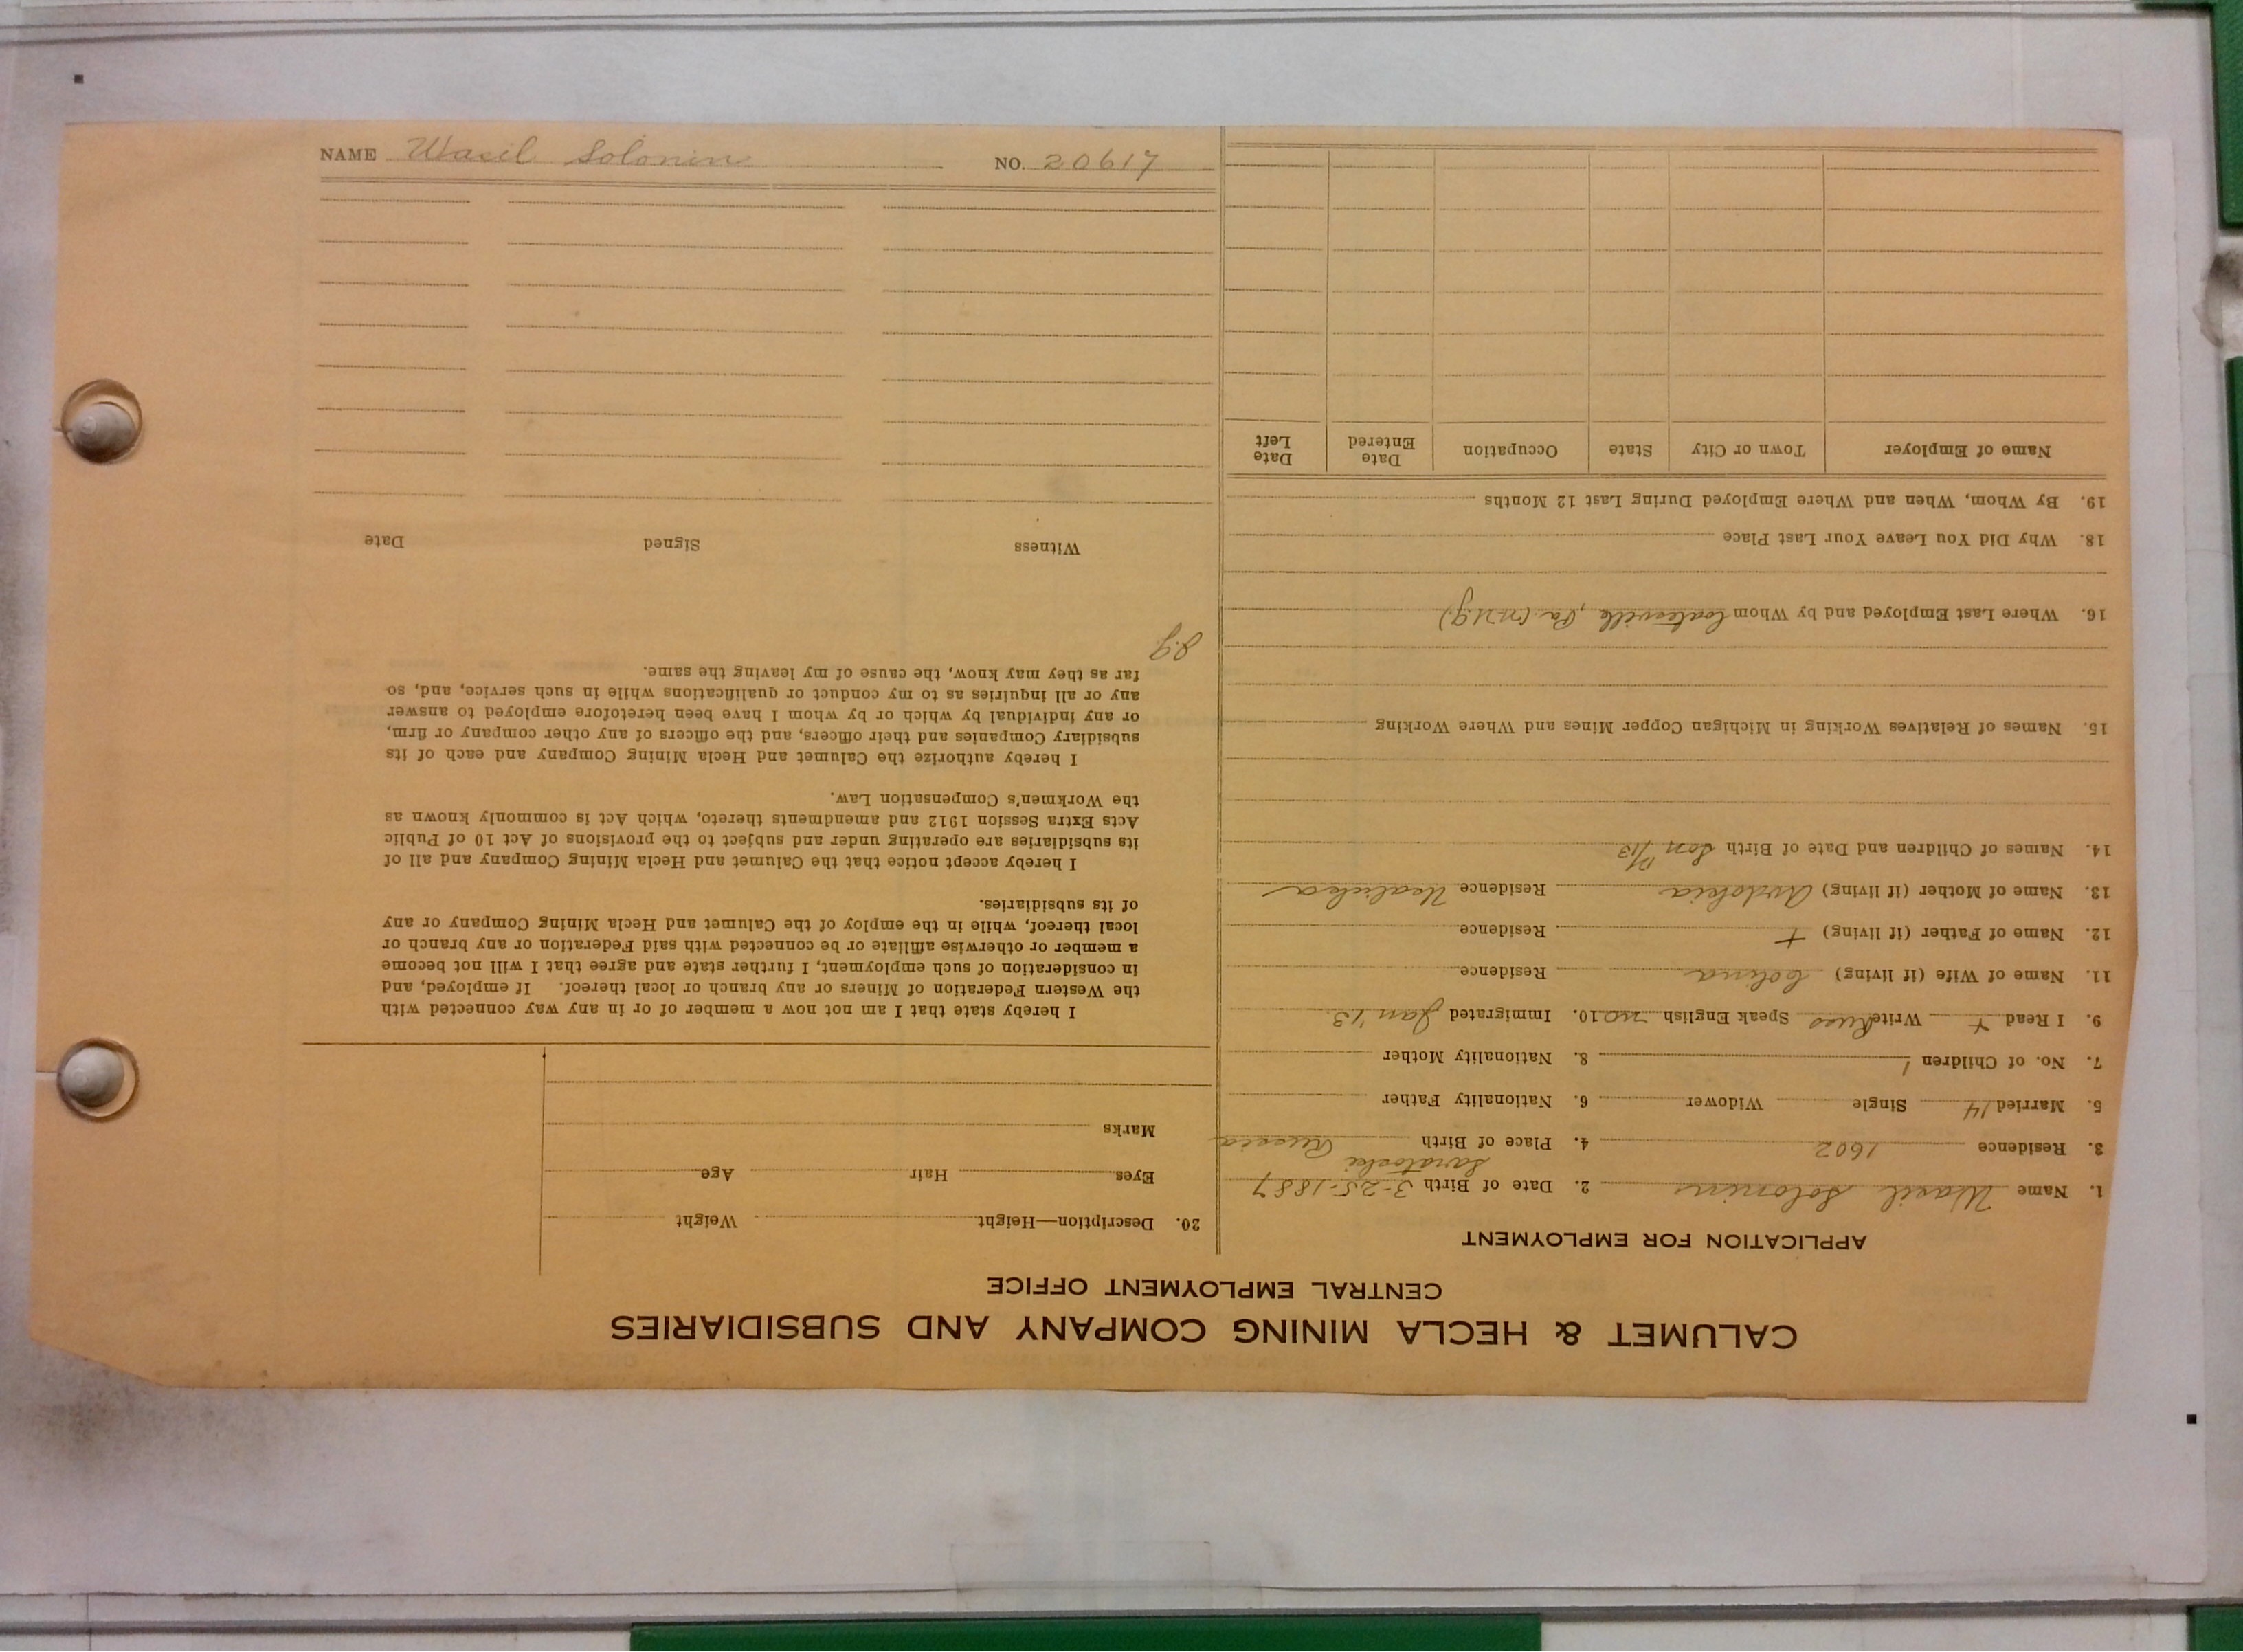 CALUMET & HECLA MINING COMPANY AND SUBSIDIARIES
CENTRAL EMPLOYMENT OFFICE
APPLICATION FOR EMPLOYMENT
1. Name Wasil Solonin 2. Date of Birth 3-25-1887
3. Residence 1602 4. Place of Birth Saratoski Russia
5. Married 14 Single Widower 6. Nationality Father
7. No. of Children 1 8. Nationality Mother
9. I Read + Write Russ Speak English no 10. Immigrated Jan '13
11. Name of Wife (if living) Residence
12. Name of Father (if living) + Residence
13. Name of Mother (if living) Avdokia Residence
14. Names of Children and Date of Birth Son
15. Names of Relatives Working in Michigan Copper Mines and Where Working
16. Where Last Employed and by Whom Coatesville, Pa.
18. Why Did You Leave Your Last Place
19. By Whom, When and Where Employed During Last 12 Months
Name of Employer Town or City State Occupation Date Entered Date Left
20. Description—Height Weight
Eyes Hair Age
Marks
I hereby state that I am not now a member of or in any way connected with
the Western Federation of Miners or any branch or local thereof. If employed, and
in consideration of such employment, I further state and agree that I will not become
a member or otherwise affiliate or be connected with said Federation or any branch or
local thereof, while in the employ of the Calumet and Hecla Mining Company or any
of its subsidiaries.
I hereby accept notice that the Calumet and Hecla Mining Company and all of
its subsidiaries are operating under and subject to the provisions of Act 10 of Public
Acts Extra Session 1912 and amendments thereto, which Act is commonly known as
the Workmen's Compensation Law.
I hereby authorize the Calumet and Hecla Mining Company and each of its
subsidiary Companies and their officers, and the officers of any other company or firm,
or any individual by which or by whom I have been heretofore employed to answer
any or all inquiries as to my conduct or qualifications while in such service, and, so
far as they may know, the cause of my leaving the same.
Witness Signed Date
NAME Wasil Solonin NO. 20617